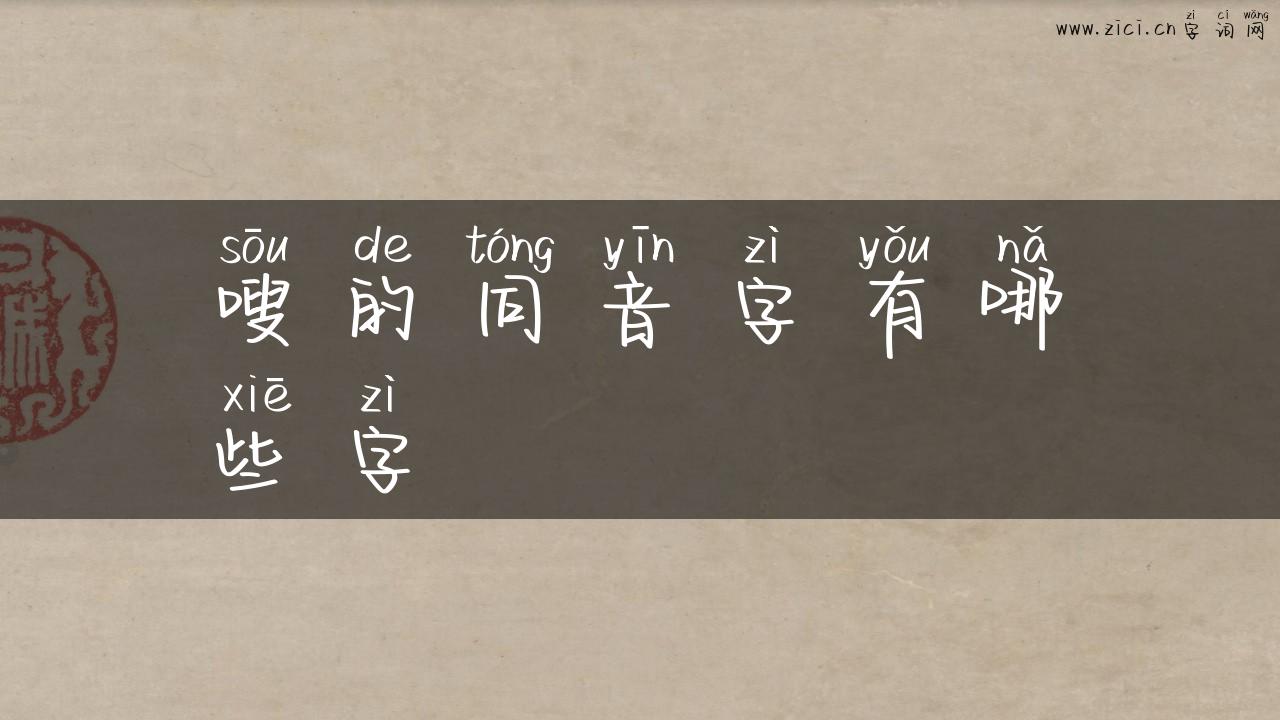 zì cí wǎng
www.zici.cn 字词网
sōu de tóng yīn zì yǒu nǎ
嗖的同音字有哪
xiē zì
些字